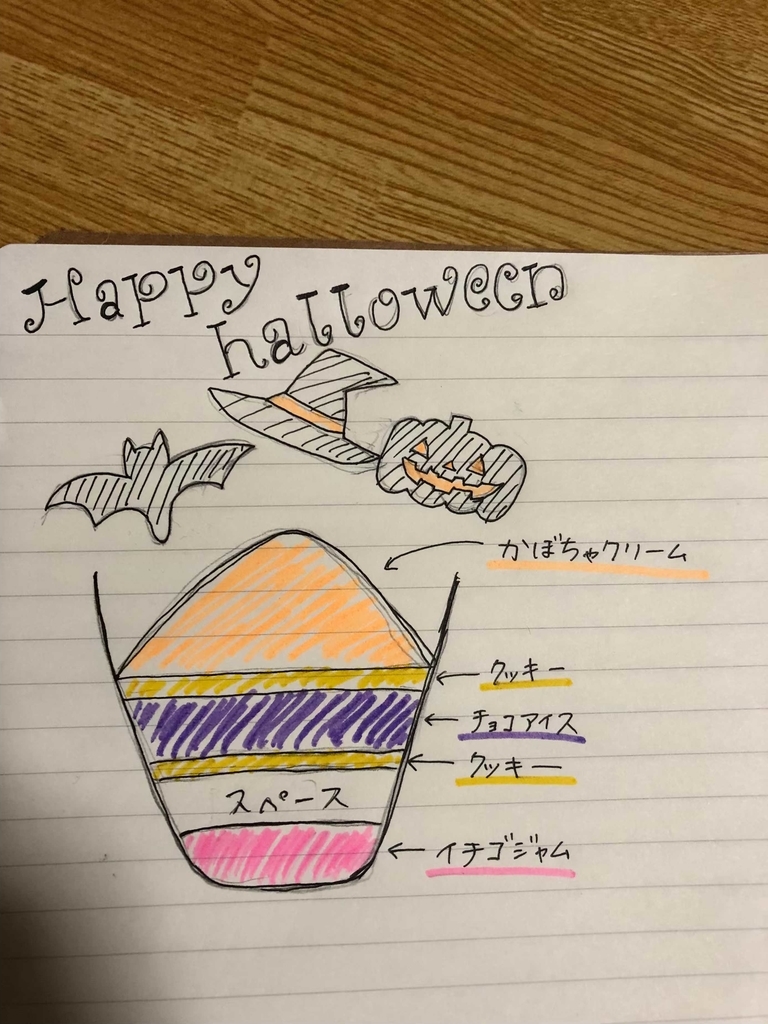 Happy
halloween
かぼちゃクリーム
クッキー
チョコアイス
クッキー
スペース
イチゴジャム